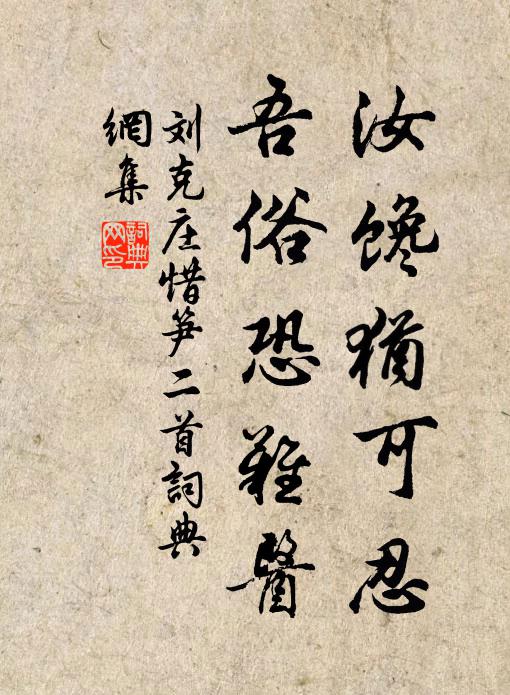 汝馋犹可忍
吾俗恐难醫
刘克庄惜笋二首詞典
網集
詞典
网印